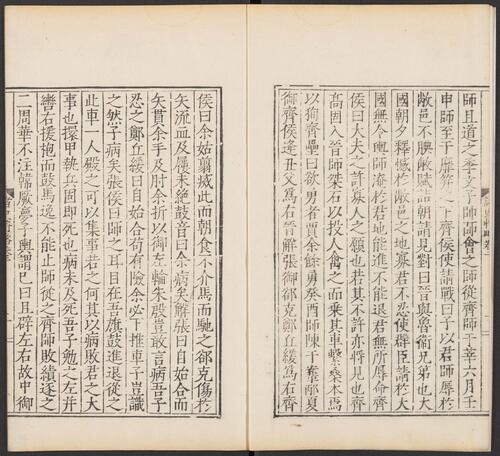 師且道之季文子師師會之師從齊師于莘六月壬
申師至于靡筓之下齊侯使請戰曰子以君師辱於
敝邑不腆敝賦詰朝請見對曰晉與魯衛兄弟也大
國朝夕釋憾於敝邑之地寡君不忍使群臣請於大
國無令輿師淹於君地能進不能退君無所辱命齊
侯曰大夫之許寡人之願也若其不許亦將見也齊
高固入晉師桀石以投人禽之而乘其車繫桑本焉
以徇齊壘曰欲勇者賈余餘勇癸酉師陳于鞌邴夏
御齊侯逢丑父為右晉解張御郤克鄭丘緩為右齊
侯曰余姑翦滅此而朝食不介馬而馳之郤克傷於
矢流血及屨未絕鼓音曰余病矣解張曰自始合而
矢貫余手及肘余折以御左輪朱殷豈敢言病吾子
忍之鄭丘緩曰自始合苟有險余必下推車子豈識
之然子病矣張侯曰師之耳目在吾旗鼓進退從之
此車一人殿之可以集事若之何其以病敗君之大
事也擐甲執兵固即死也病未及死吾子勉之左并
轡右援枹而鼓馬逸不能止師從之齊師敗績逐之
三周華不注韓厥夢子輿謂己曰且辟左右故中御